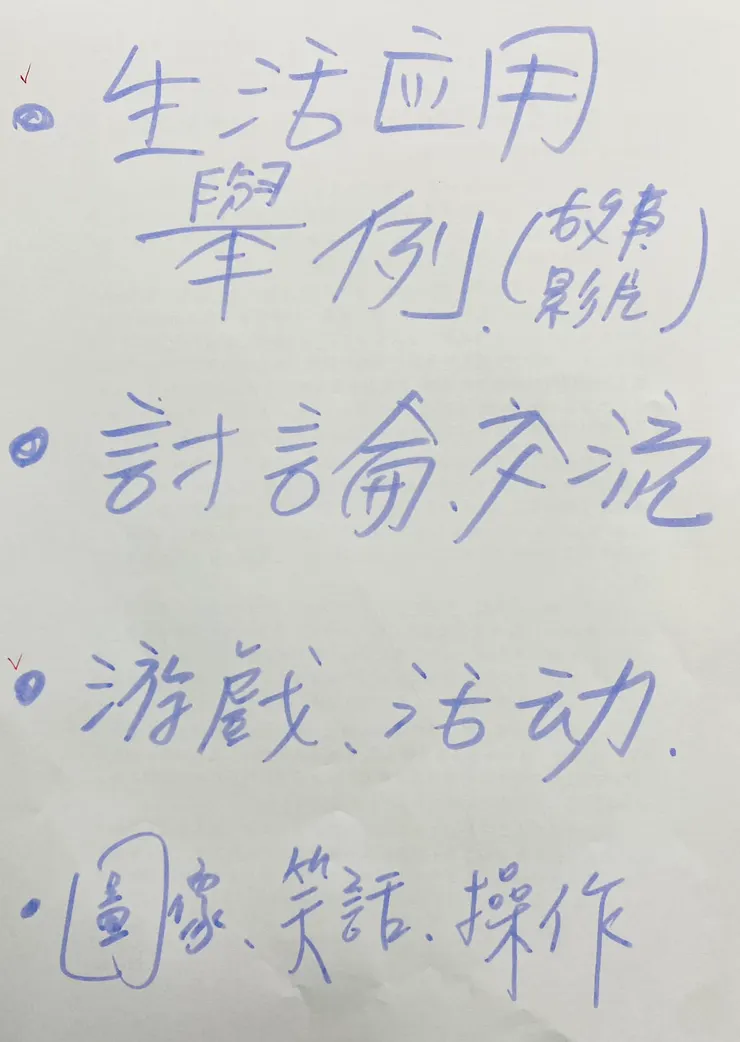 ✓
• 生活应用
舉例.(故事
影片)
• 討論、交流
✓
• 游戲、活动.
• 圖像、笑話、操作